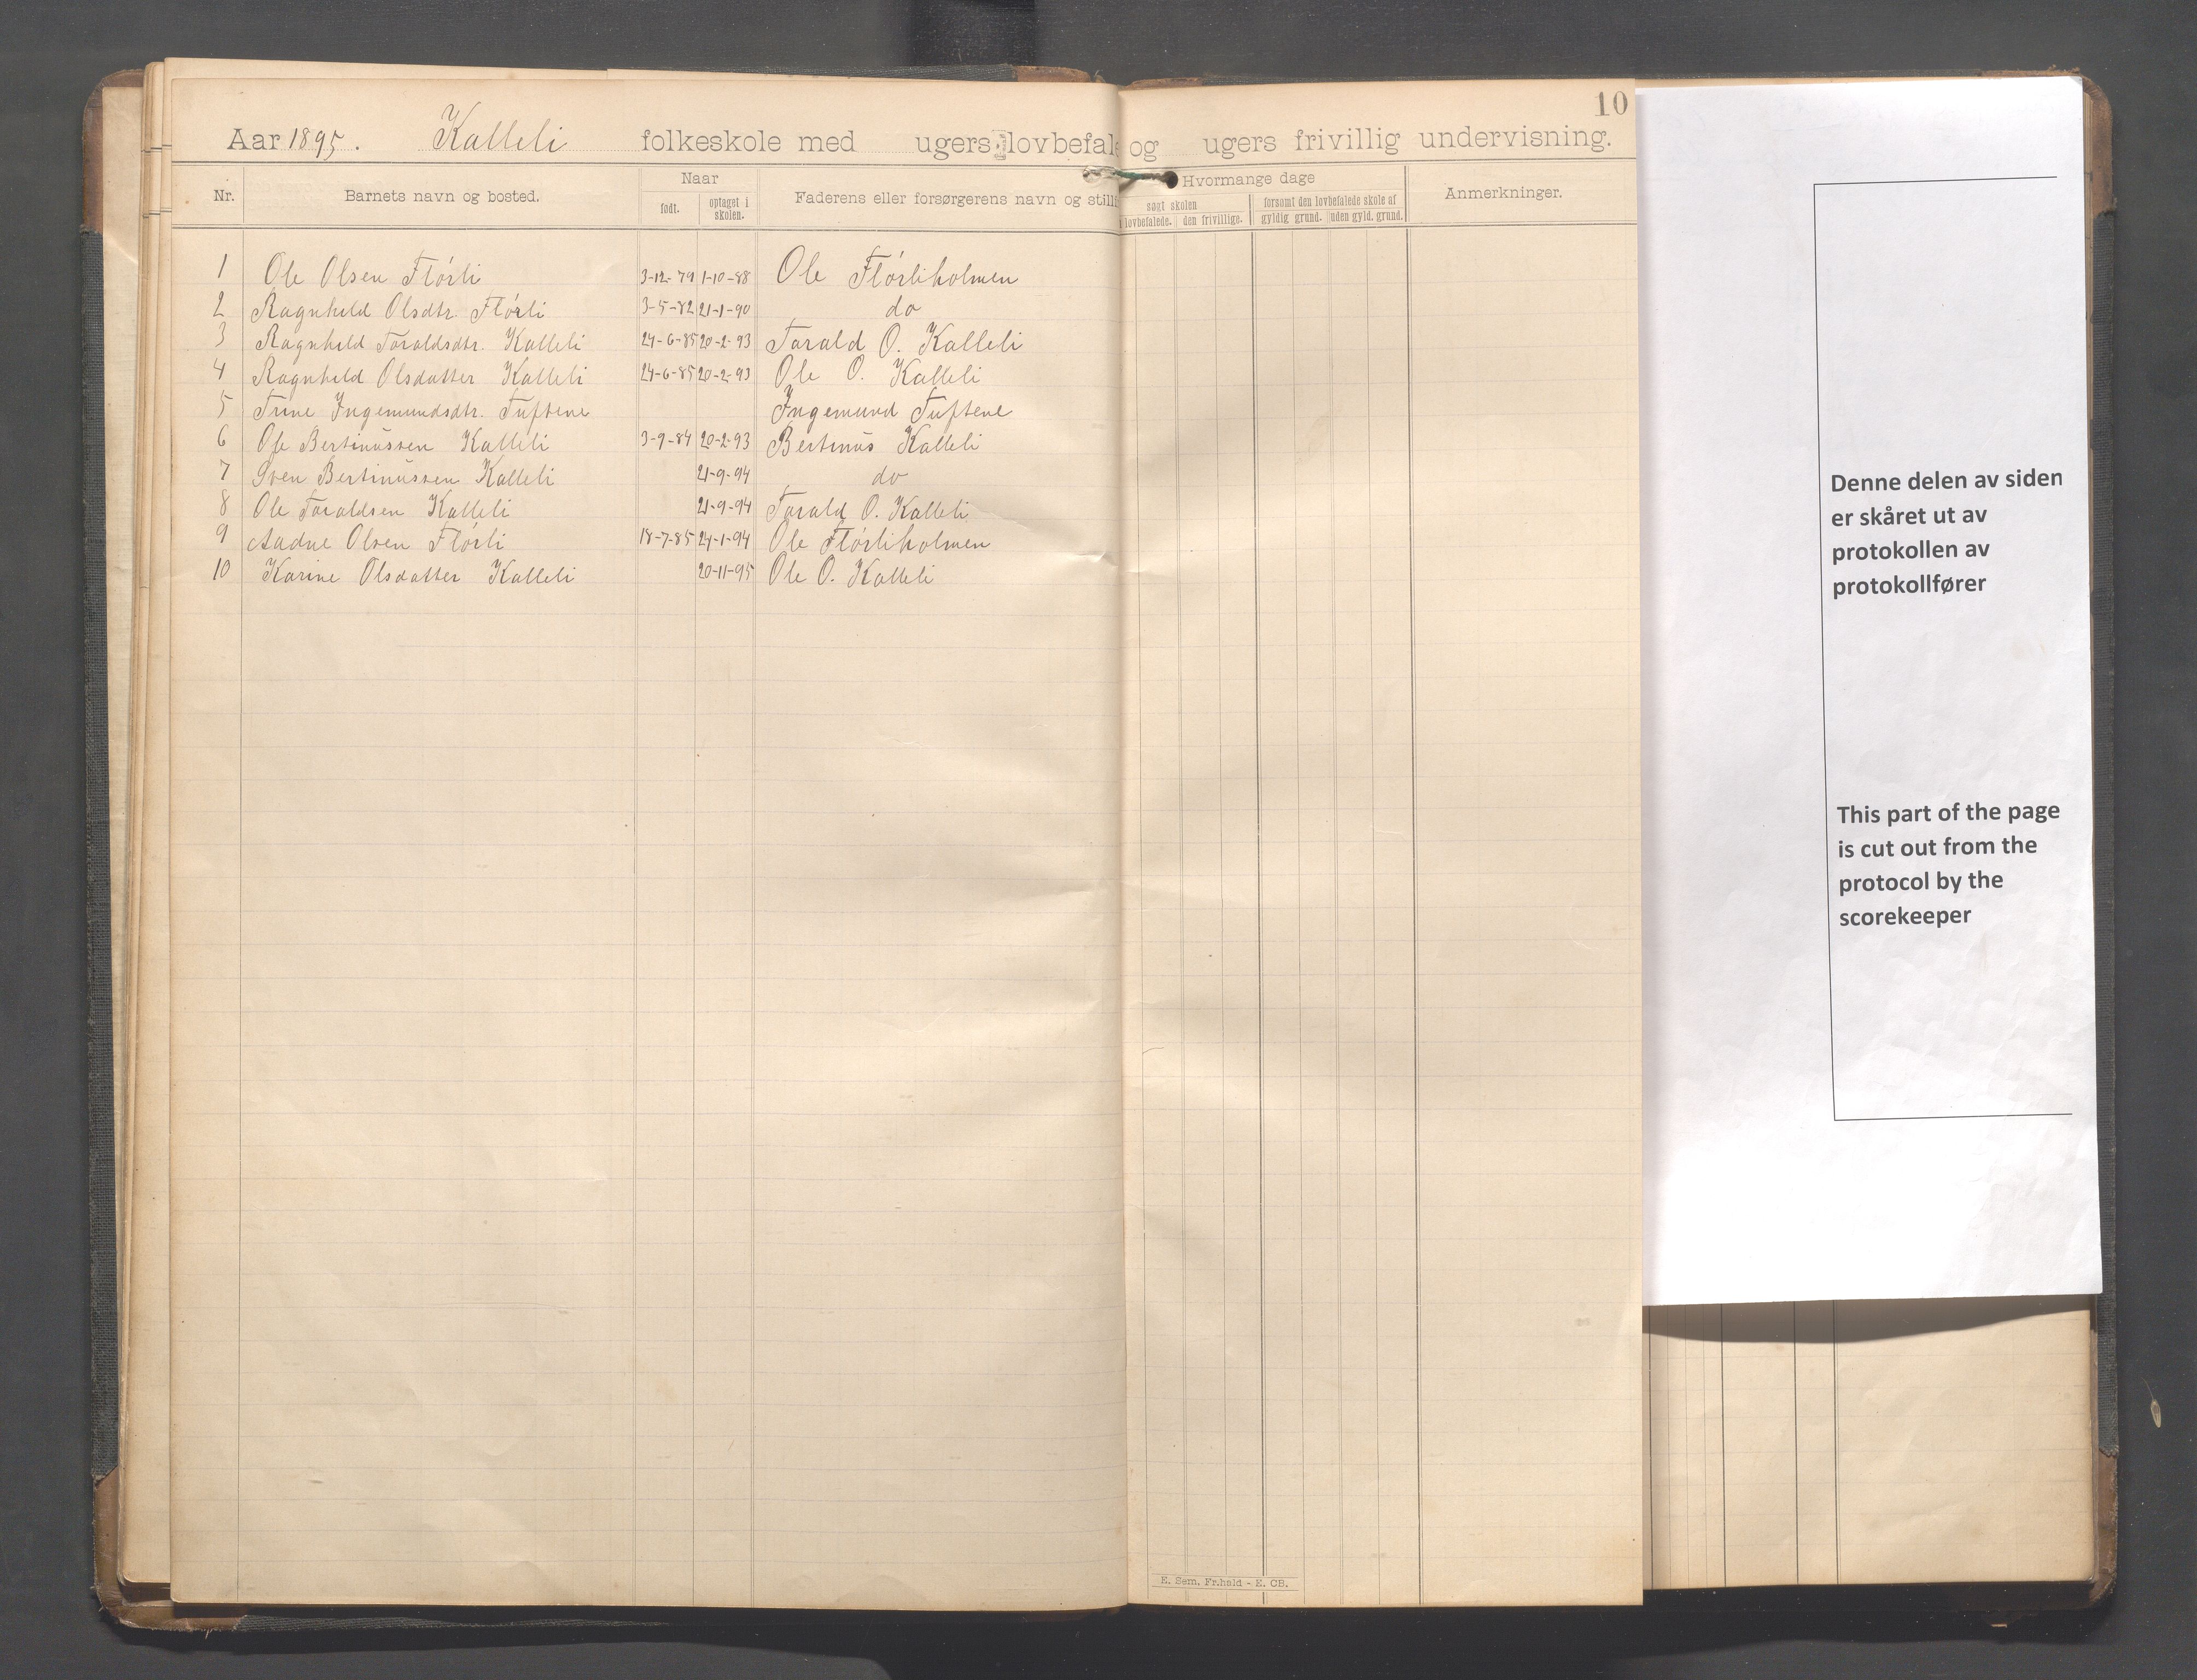 10
Aar 1895. Kalleli folkeskole med ugers lovbefal og ugers frivillig undervisning.
Nr. Barnets navn og bosted. Naar født. optaget i skolen. Faderens eller forsørgerens navn og still Hvormange dage søgt skolen lovbefalede. den frivillige. forsømt den lovbefalede skole af gyldig grund. uden gyld. grund. Anmerkninger.
1 Ole Olsen Flórli 3-12-79 1-10-88 Ole Flórliholmen
2 Ragnhild Olsdtr. Flórli 3-5-82 21-1-90 do
3 Ragnhild Taraldsdtr. Kalleli 24-6-85 20-2-93 Tarald O. Kalleli
4 Ragnhild Olsdatter Kalleli 24-6-85 20-2-93 Ole O. Kalleli
5 Trine Ingemundsdtr. Tuftene Ingemund Tuftene
6 Ole Bertinussen Kalleli 3-9-84 20-2-93 Bertinus Kalleli
7 Sven Bertinussen Kalleli 21-9-94 do
8 Ole Taraldsen Kalleli 21-9-94 Tarald O. Kalleli
9 Aadne Olsen Flórli 18-7-85 24-1-94 Ole Flórliholmen
10 Karine Olsdatter Kalleli 20-11-95 Ole O. Kalleli
E. Sem. Fr.hald - E. CB.
Denne delen av siden
er skåret ut av
protokollen av
protokollfører
This part of the page
is cut out from the
protocol by the
scorekeeper